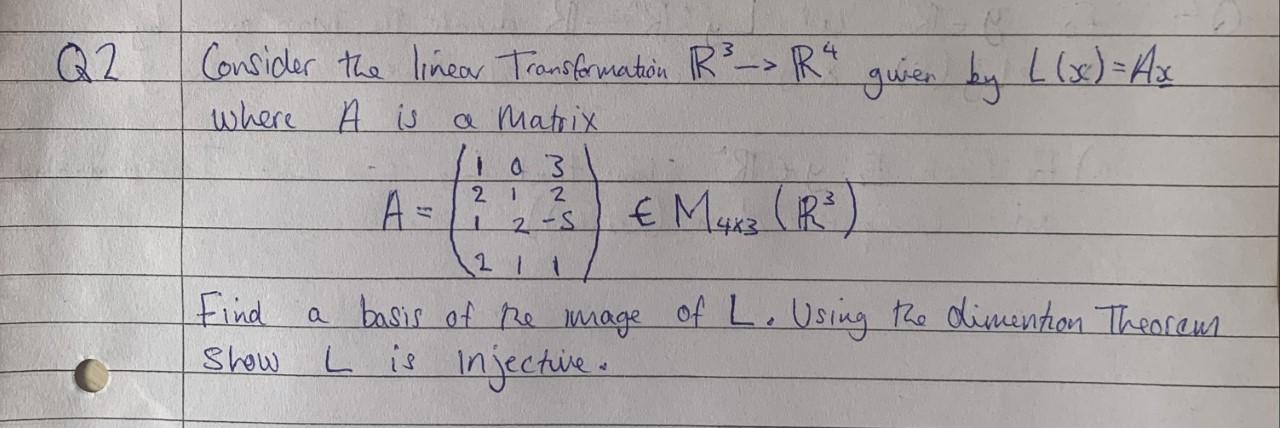 Q2 Consider the linear Transformation ℝ³ -> ℝ⁴ given by L(x)=Ax
where A is a matrix
1 0 3
2 1 2
A = 1 2 -5 ∈ M₄ₓ₃ (ℝ³)
2 1 1
Find a basis of the image of L. Using the dimention Theorem
Show L is injective.